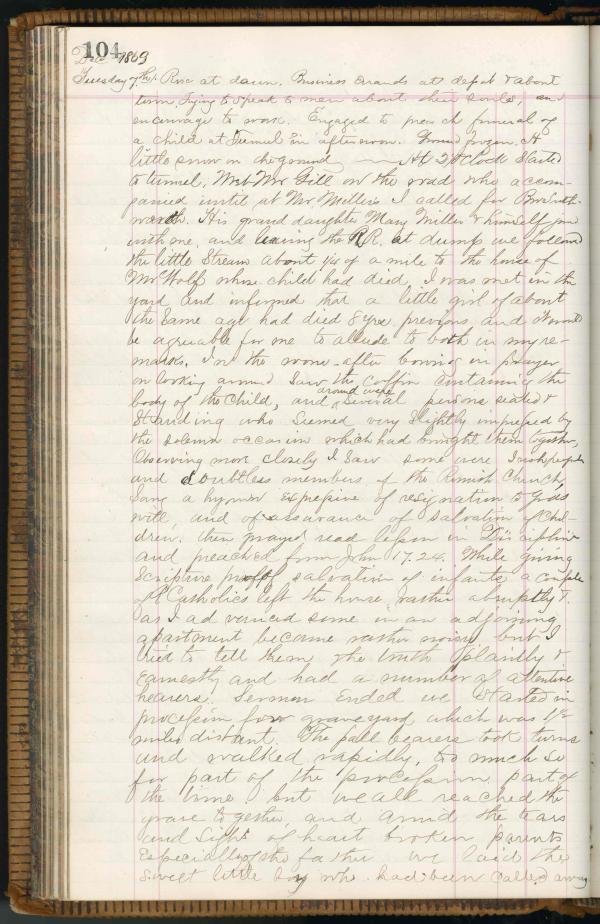 104
Dec 1869
Tuesday 7th. Rose at dawn. Business errands at depot & about
town, trying to speak to men about their souls, and
encourage to work. Engaged to preach funeral of
a child at Tunnel in afternoon. Ground frozen. A
little snow on the ground — At 2 O'clock started
to tunnel. Met Mr Gill on the road who accom-
panied until at Mr Miller's I called for Bro
His grand daughter Mary Miller & himself
with me, and leaving the R.R. at dump we followed
the little stream about 1/4 of a mile to the house of
Mr Wolf whose child had died. I was met in the
yard and informed that a little girl of about
the same age had died 8 yrs previous and it would
be agreeable for me to allude to both in my re-
marks. In the room after bowing in prayer
on looking around saw the coffin containing the
body of the child, and around were several persons seated &
standing who seemed very slightly impressed by
the solemn occasion which had brought them together,
Observing more closely I saw some were Irish people
and doubtless members of the Romish Church,
Sang a hymn expressive of resignation to Gods
will, and of assurance of salvation of chil-
dren. then prayed read lesson in Discipline
and preached from John 17.24. While giving
Scripture proof of salvation of infants a couple
of R Catholics left the house, rather abruptly &
as I advanced some in an adjoining
apartment became rather noisy but I
tried to tell them the truth plainly &
earnestly and had a number of attentive
hearers. Sermon ended we started in
procession for graveyard which was 1/2
miles distant. The pall bearers took turns
and walked rapidly, too much so
for part of the procession part of
the time but we all reached the
grave together, and amid the tears
and sight of heart broken parents
Especially of the father we laid the
sweet little boy who had been called away